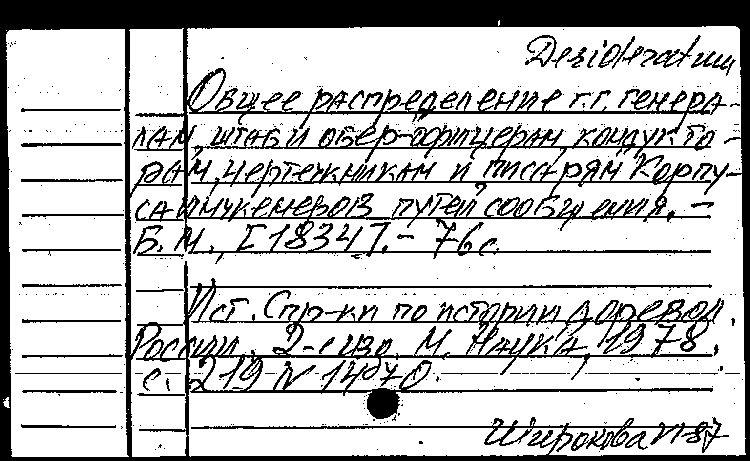 Desideratum
Общее распределение г.г. генера-
лам, штаб и обер-офицерам, кондукто-
рам, чертежникам и писарям Корпу-
са инженеров путей сообщения. –
Б.М., [1834]. – 76 с.
Ист. Спр-ки по истории доревол.
России. 2-е изд. М. Наука, 1978.
с. 219 № 1470.
Широкова VI-87